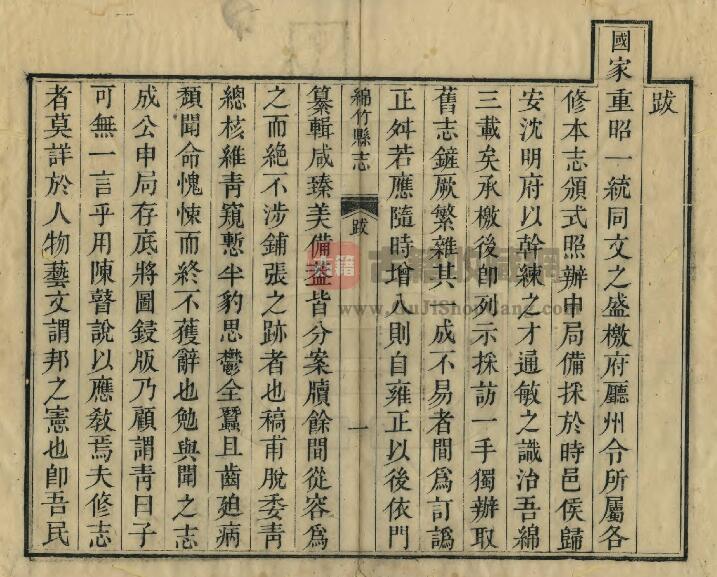 跋
國家重昭一統同文之盛檄府廳州令所屬各
修本志頒式照辦申局備採於時邑侯歸
安沈明府以幹練之才通敏之識治吾綿
三載矣承檄後卽列示採訪一手獨辦取
舊志鏟厥繁雜其一成不易者間爲訂譌
正舛若應隨時增入則自雍正以後依門
綿竹縣志 跋 一
纂輯咸臻美備蓋皆分案牘餘間從容爲
之而絕不涉鋪張之跡者也稿甫脫委靑
總核維靑窺慙半豹思鬱全蠶且齒廹病
頹聞命愧悚而終不獲辭也勉與聞之志
成公申局存底將圖鋟版乃顧謂靑曰子
可無一言乎用陳瞽說以應敎焉夫修志
者莫詳於人物藝文謂邦之憲也卽吾民
www.GuJiShouCang.com